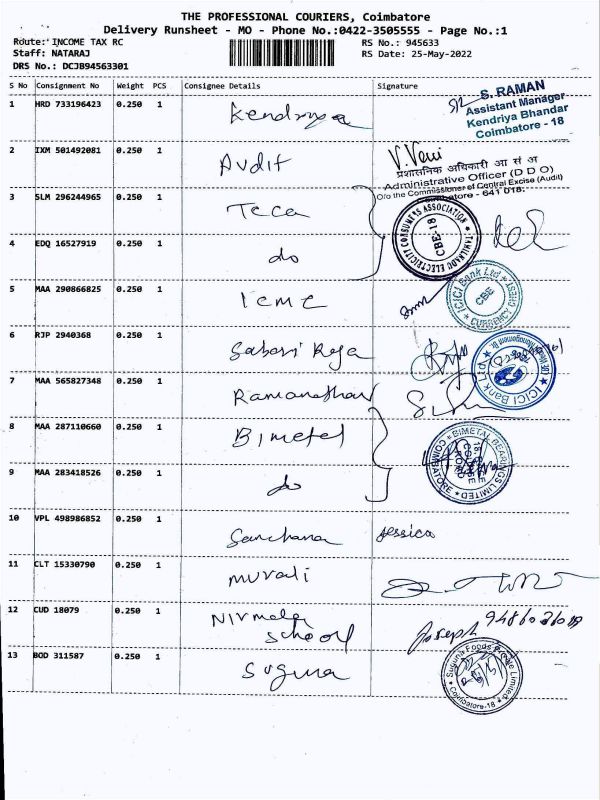 THE PROFESSIONAL COURIERS, Coimbatore
Delivery Runsheet - MO - Phone No.:0422-3505555 - Page No.:1
Route: INCOME TAX RC
RS No.: 945633
Staff: NATARAJ
RS Date: 25-May-2022
DRS No.: DCJB94563301
S No Consignment No Weight PCS Consignee Details Signature
1 HRD 733196423 0.250 1 Kendriya
S. RAMAN
Assistant Manager
Kendriya Bhandar
Coimbatore - 18
2 IXM 501492081 0.250 1 Audit V. Veni
प्रशासनिक अधिकारी आ सं अ
Administrative Officer (D D O)
O/o the Commissioner of Central Excise (Audit)
Coimbatore - 641 018.
3 SLM 296244965 0.250 1 Teca
TAMILNADU ELECTRICITY CONSUMERS ASSOCIATION
CBE-18
4 EDQ 16527919 0.250 1 do
5 MAA 290866825 0.250 1
ICICI Bank Ltd
CBE
CURRENCY CHEST
6 RJP 2940368 0.250 1 Sabari Raja
ICICI Bank Ltd
7 MAA 565827348 0.250 1 Ramanathan
8 MAA 287110660 0.250 1 Bimetal
BIMETAL BEARINGS LIMITED
COIMBATORE
9 MAA 283418526 0.250 1 do
10 VPL 498986852 0.250 1 Sanchana Jessica
11 CLT 15330790 0.250 1 Murali
12 CUD 18079 0.250 1 Nirmala
School Joseph
13 BOD 311587 0.250 1 Suguna
Suguna Foods Private Limited
Coimbatore-18